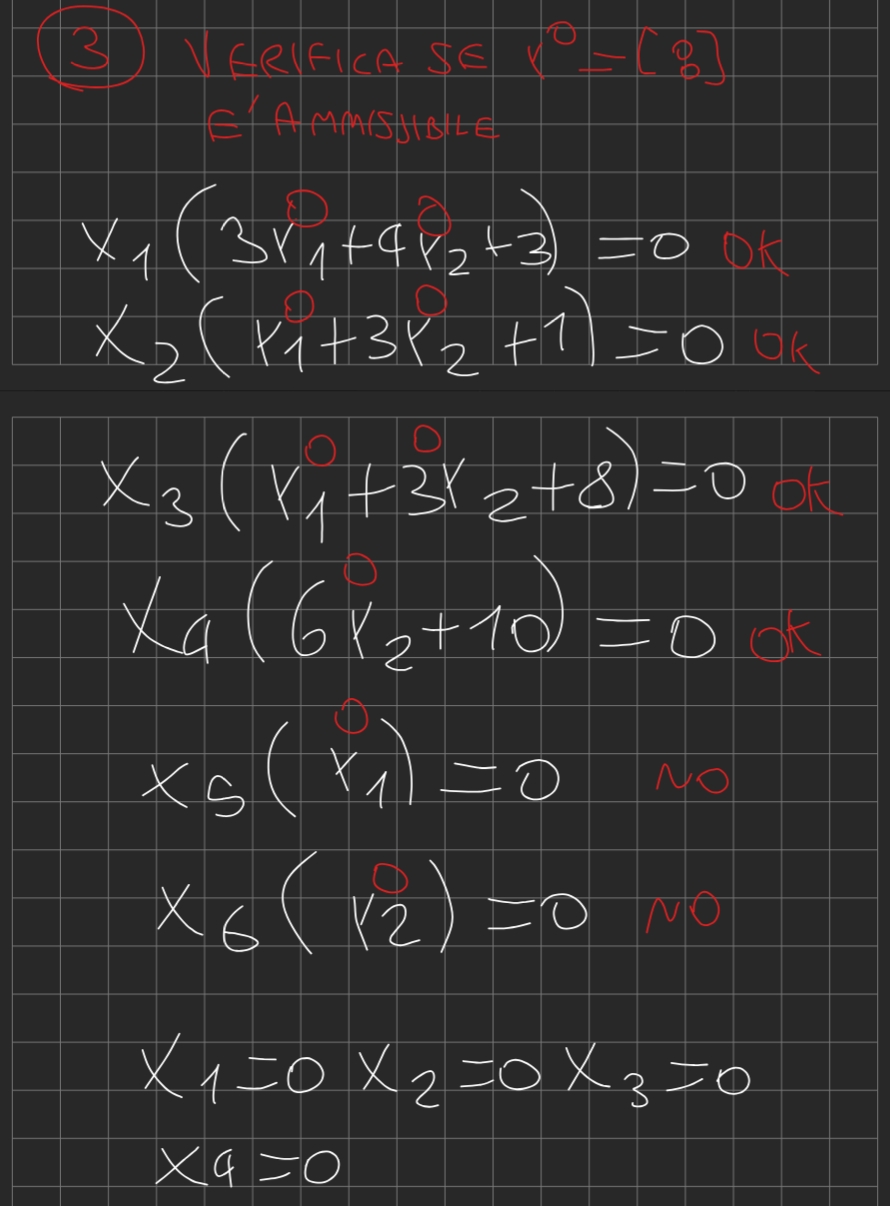 3 VERIFICA SE Y⁰=[0 0]
E' AMMISSIBILE
0 0
X₁(3Y₁+4Y₂+3)=0 OK
0 0
X₂(Y₁+3Y₂+1)=0 OK
0 0
X₃(Y₁+3Y₂+8)=0 OK
0
X₄(6Y₂+10)=0 OK
0
X₅(Y₁)=0 NO
0
X₆(Y₂)=0 NO
X₁=0 X₂=0 X₃=0
X₄=0